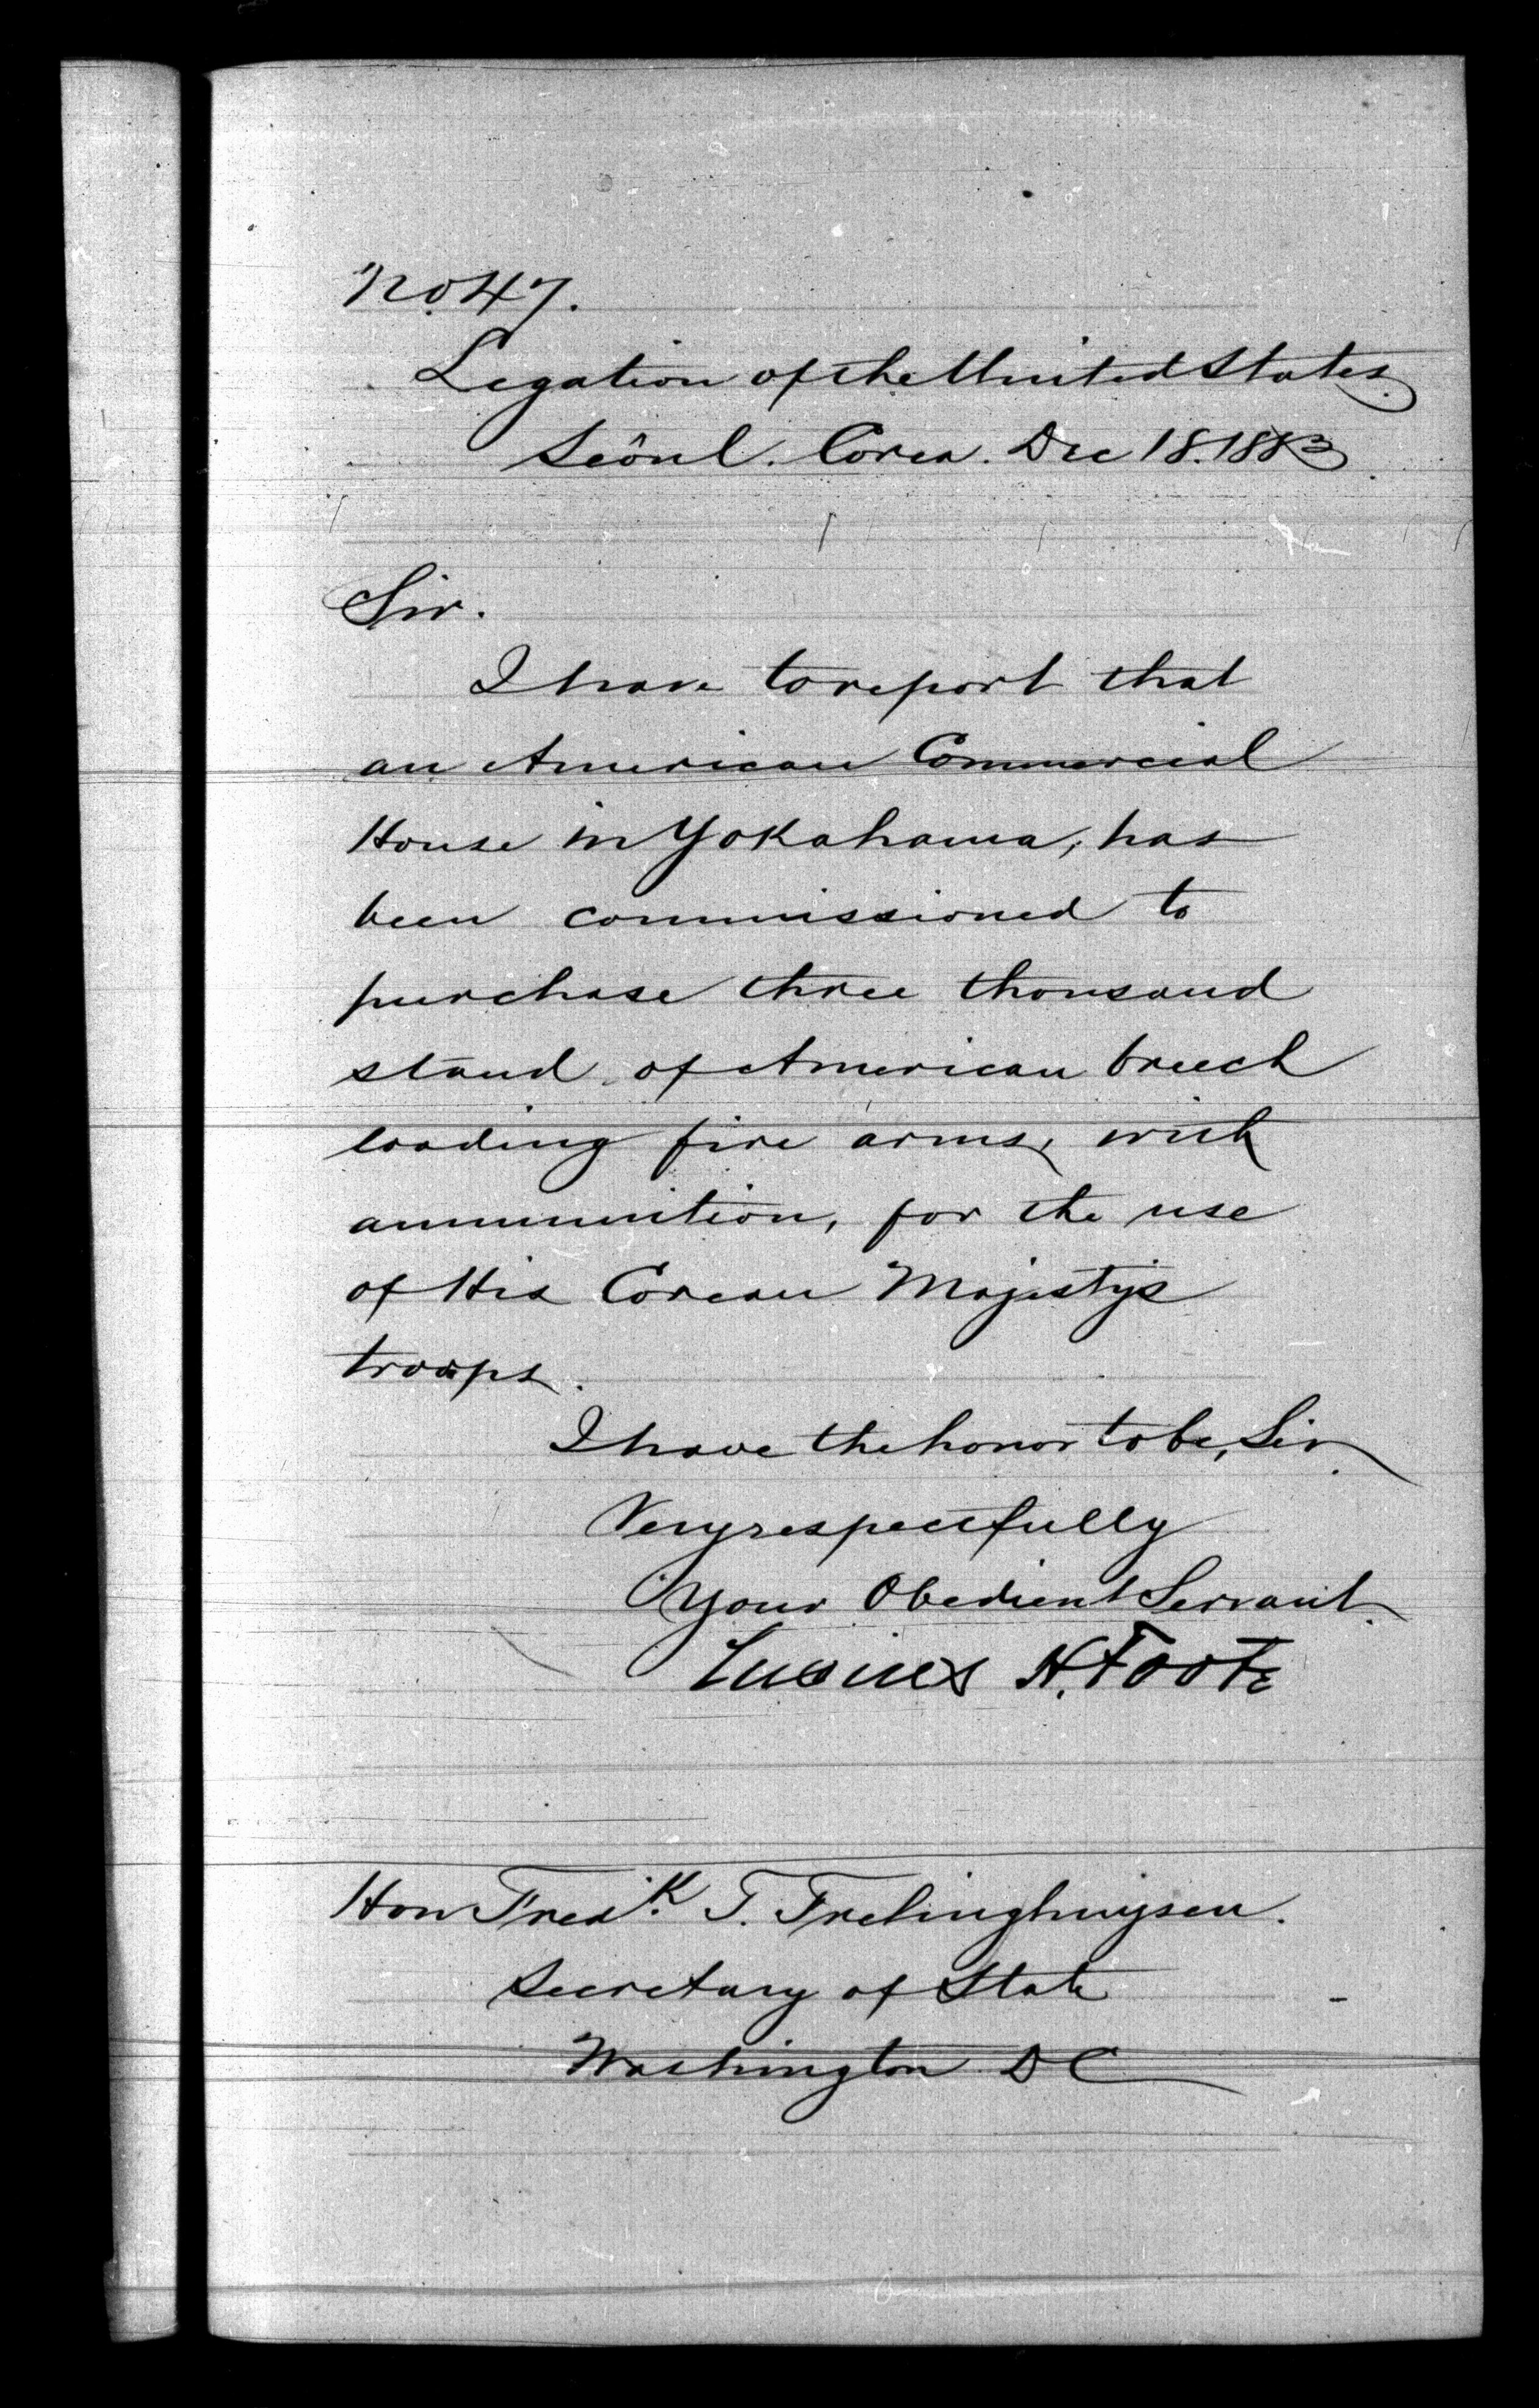 No. 47.
Legation of the United States.
Seôul. Corea. Dec 18. 1883
Sir.
I have to report that
an American Commercial
House in Yokahama, has
been commissioned to
purchase three thousand
stand of American breech
loading fire arms, with
ammunition, for the use
of His Corean Majesty's
troops.
I have the honor to be, Sir.
Very respectfully
Your Obedient Servant.
Lucius H. Foote
Hon Fredk. T. Frelinghuysen.
Secretary of State
Washington D C